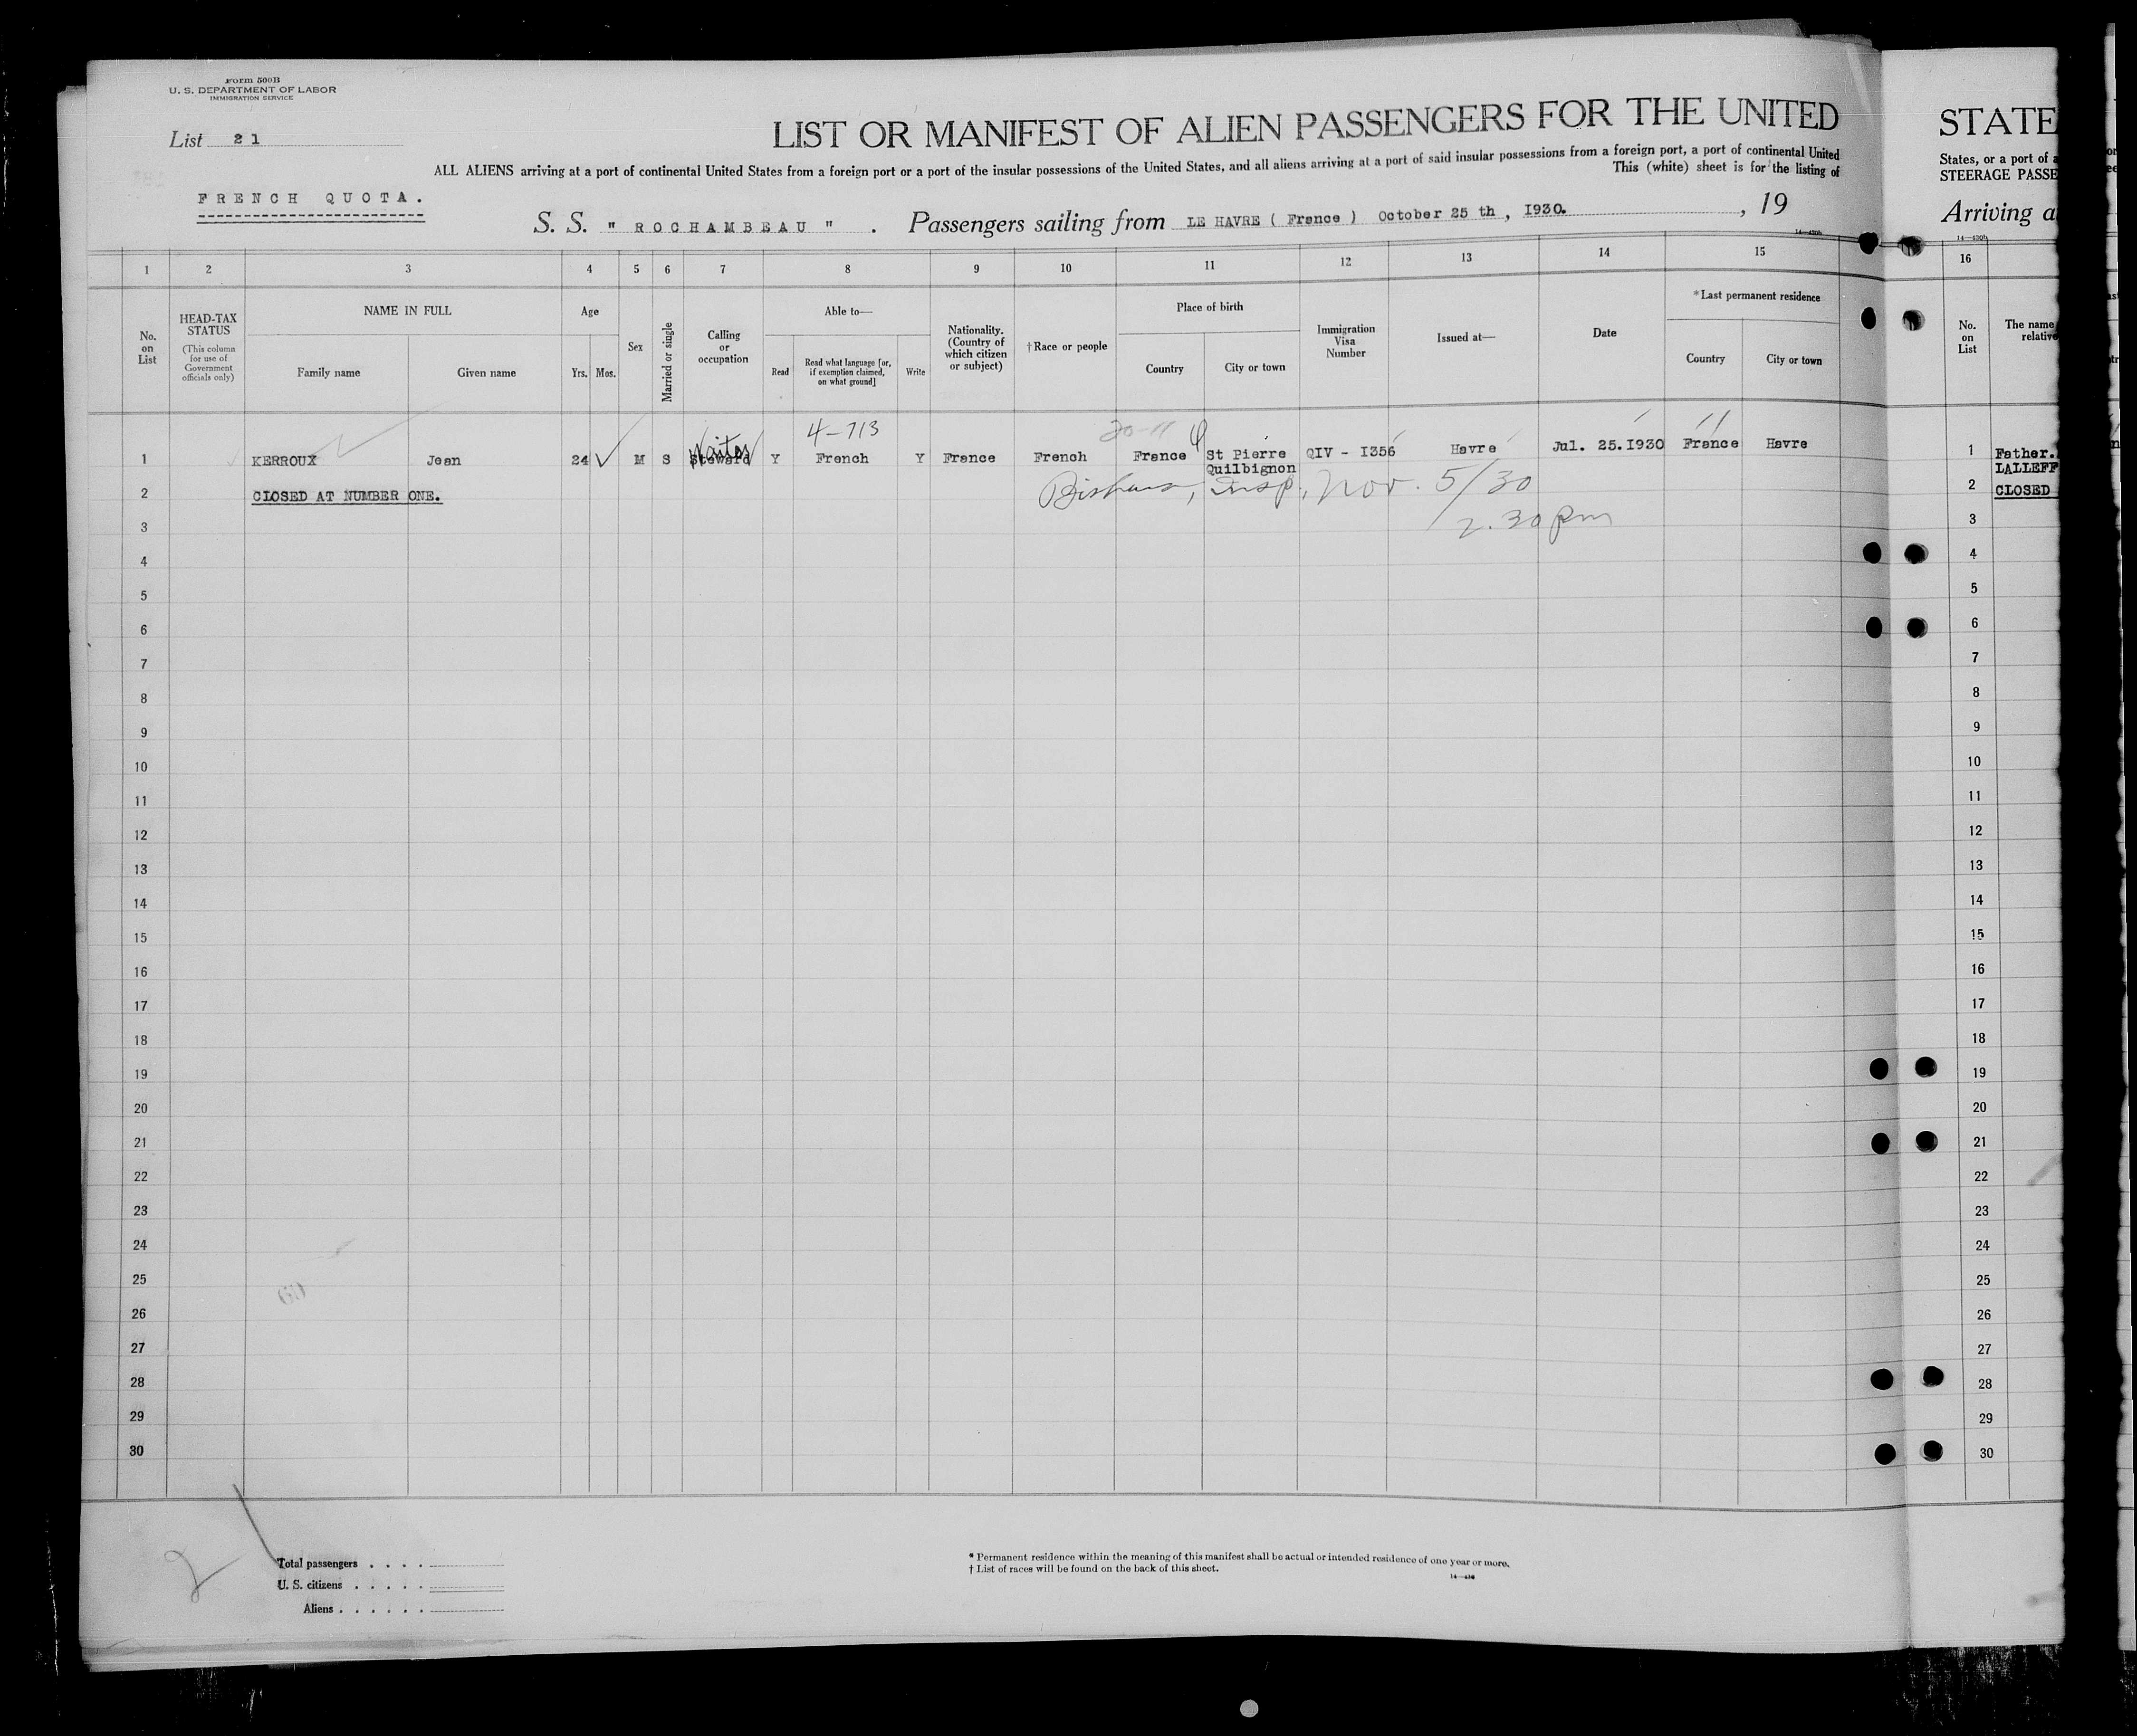 Form 500B
U. S. DEPARTMENT OF LABOR
IMMIGRATION SERVICE
List 21
LIST OR MANIFEST OF ALIEN PASSENGERS FOR THE UNITED
ALL ALIENS arriving at a port of continental United States from a foreign port or a port of the insular possessions of the United States, and all aliens arriving at a port of said insular possessions from a foreign port, a port of continental United
This (white) sheet is for the listing of
FRENCH QUOTA.
S. S. " ROCHAMBEAU " . Passengers sailing from LE HAVRE ( France ) October 25 th , I930. , 19
STATE
States, or a port of
STEERAGE PASSE
Arriving a
1 2 3 4 5 6 7 8 9 10 11 12 13 14 15 16
No. on List
HEAD-TAX STATUS
(This column for use of Government officials only)
NAME IN FULL
Family name Given name
Age
Yrs. Mos.
Sex
Married or single
Calling or occupation
Able to—
Read
Read what language [or, if exemption claimed, on what ground]
Write
Nationality. (Country of which citizen or subject)
†Race or people
Place of birth
Country City or town
Immigration Visa Number
Issued at—
Date
*Last permanent residence
Country City or town
No. on List
The name
relative
4-713
1 KERROUX Jean 24 M S Steward Waiter Y French Y France French France St Pierre Quilbignon QIV - I356 Havre Jul. 25.I930 France Havre 1 Father.
LALLEFF
2 CLOSED AT NUMBER ONE. Insp. Nov. 5/30 2 CLOSED
3 2.30 pm 3
4 4
5 5
6 6
7 7
8 8
9 9
10 10
11 11
12 12
13 13
14 14
15 15
16 16
17 17
18 18
19 19
20 20
21 21
22 22
23 23
24 24
25 25
26 26
27 27
28 28
29 29
30 30
2
Total passengers . . . .
U. S. citizens . . . . .
Aliens . . . . . .
* Permanent residence within the meaning of this manifest shall be actual or intended residence of one year or more.
† List of races will be found on the back of this sheet.